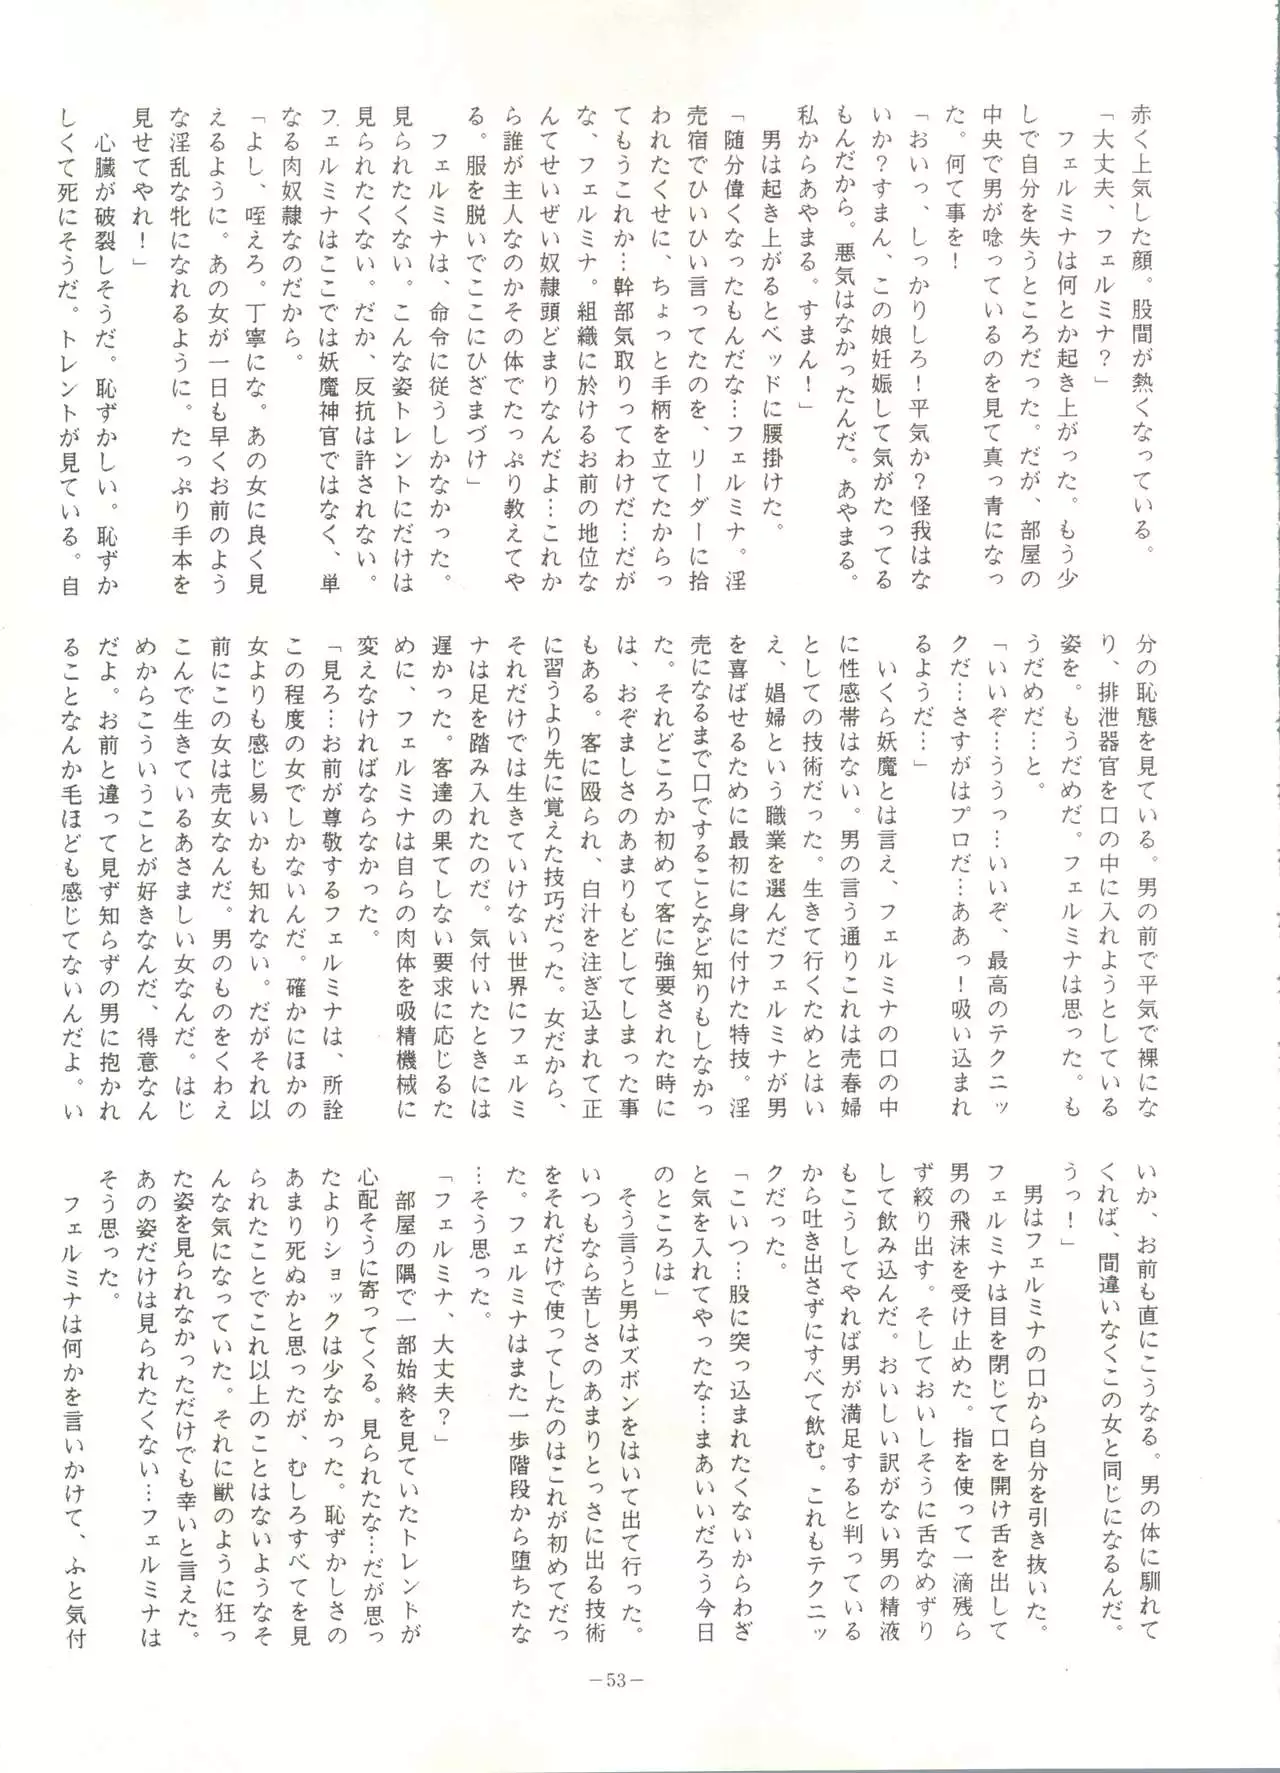 赤く上気した顔。股間が熱くなっている。
「大丈夫、フェルミナ？」
　フェルミナは何とか起き上がった。もう少
しで自分を失うところだった。だが、部屋の
中央で男が唸っているのを見て真っ青になっ
た。何て事を！
「おいっ、しっかりしろ！平気か？怪我はな
いか？すまん、この娘妊娠して気がたってる
もんだから。悪気はなかったんだ。あやまる。
私からあやまる。すまん！」
　男は起き上がるとベッドに腰掛けた。
「随分偉くなったもんだな…フェルミナ。淫
売宿でひいひい言ってたのを、リーダーに拾
われたくせに、ちょっと手柄を立てたからっ
てもうこれか…幹部気取りってわけだ…だが
な、フェルミナ。組織に於けるお前の地位な
んてせいぜい奴隷頭どまりなんだよ…これか
ら誰が主人なのかその体でたっぷり教えてや
る。服を脱いでここにひざまづけ」
　フェルミナは、命令に従うしかなかった。
見られたくない。こんな姿トレントにだけは
見られたくない。だか、反抗は許されない。
フェルミナはここでは妖魔神官ではなく、単
なる肉奴隷なのだから。
「よし、咥えろ。丁寧にな。あの女に良く見
えるように。あの女が一日も早くお前のよう
な淫乱な牝になれるように。たっぷり手本を
見せてやれ！」
　心臓が破裂しそうだ。恥ずかしい。恥ずか
しくて死にそうだ。トレントが見ている。自
分の恥態を見ている。男の前で平気で裸にな
り、排泄器官を口の中に入れようとしている
姿を。もうだめだ。フェルミナは思った。も
うだめだ…と。
「いいぞ…ううっ…いいぞ、最高のテクニッ
クだ…さすがはプロだ…ああっ！吸い込まれ
るようだ…」
　いくら妖魔とは言え、フェルミナの口の中
に性感帯はない。男の言う通りこれは売春婦
としての技術だった。生きて行くためとはい
え、娼婦という職業を選んだフェルミナが男
を喜ばせるために最初に身に付けた特技。淫
売になるまで口ですることなど知りもしなかっ
た。それどころか初めて客に強要された時に
は、おぞましさのあまりもどしてしまった事
もある。客に殴られ、白汁を注ぎ込まれて正
に習うより先に覚えた技巧だった。女だから、
それだけでは生きていけない世界にフェルミ
ナは足を踏み入れたのだ。気付いたときには
遅かった。客達の果てしない要求に応じるた
めに、フェルミナは自らの肉体を吸精機械に
変えなければならなかった。
「見ろ…お前が尊敬するフェルミナは、所詮
この程度の女でしかないんだ。確かにほかの
女よりも感じ易いかも知れない。だがそれ以
前にこの女は売女なんだ。男のものをくわえ
こんで生きているあさましい女なんだ。はじ
めからこういうことが好きなんだ、得意なん
だよ。お前と違って見ず知らずの男に抱かれ
ることなんか毛ほども感じてないんだよ。い
いか、お前も直にこうなる。男の体に馴れて
くれば、間違いなくこの女と同じになるんだ。
うっ！」
　男はフェルミナの口から自分を引き抜いた。
フェルミナは目を閉じて口を開け舌を出して
男の飛沫を受け止めた。指を使って一滴残ら
ず絞り出す。そしておいしそうに舌なめずり
して飲み込んだ。おいしい訳がない男の精液
もこうしてやれば男が満足すると判っている
から吐き出さずにすべて飲む。これもテクニッ
クだった。
「こいつ…股に突っ込まれたくないからわざ
と気を入れてやったな…まあいいだろう今日
のところは」
　そう言うと男はズボンをはいて出て行った。
いつもなら苦しさのあまりとっさに出る技術
をそれだけで使ってしたのはこれが初めてだっ
た。フェルミナはまた一歩階段から堕ちたな
…そう思った。
「フェルミナ、大丈夫？」
　部屋の隅で一部始終を見ていたトレントが
心配そうに寄ってくる。見られたな…だが思っ
たよりショックは少なかった。恥ずかしさの
あまり死ぬかと思ったが、むしろすべてを見
られたことでこれ以上のことはないようなそ
んな気になっていた。それに獣のように狂っ
た姿を見られなかっただけでも幸いと言えた。
あの姿だけは見られたくない…フェルミナは
そう思った。
　フェルミナは何かを言いかけて、ふと気付
―53―